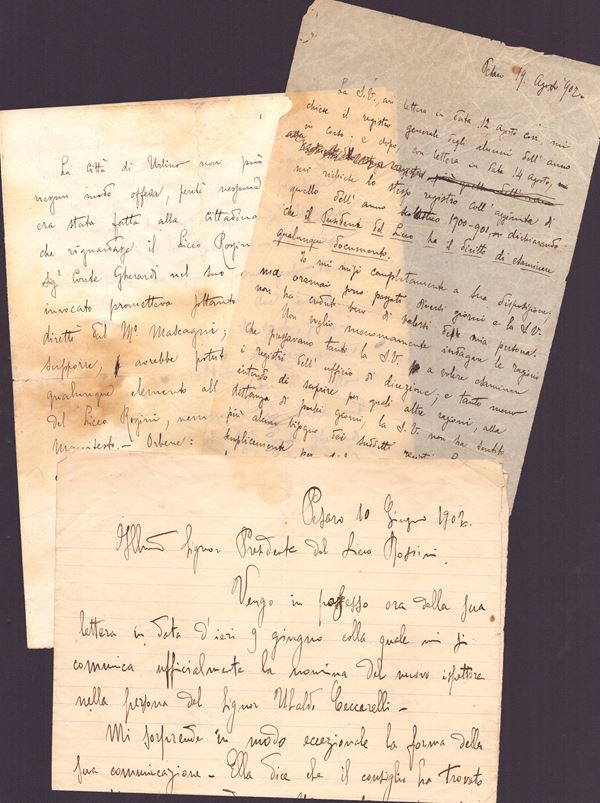 La Città di Urbino non può
nessun modo offesa, perchè nessuna
era stata fatta alla cittadina
che riguardasse il Liceo Rossini
Sigr Conte Gherardi nel suo
invocato prometteva soltanto
diretti dal Mo Mascagni;
supporre, avrebbe potuto
qualunque elemento all
del Liceo Rossini, nem
Manifesto. - Orbene:
Pesaro 19. Agosto 1902.
La S.V., con lettera in data 12 Agosto corr., mi
chiese il registro generale degli alunni dell'anno
in corso; e dopo, con lettera in data 14 Agosto,
mi richiese lo stesso registro coll'aggiunta di
quello dell'anno 1900-901 dichiarando
che il Presidente del Liceo ha il diritto di esaminare
qualunque documento.
Io mi misi completamente a Sua disposizione;
ma oramai sono passati diversi giorni e la S.V.
non ha creduto bene di valersi della mia persona.
Non voglio menomamente indagare le ragioni
che pressavano tanto la S.V. a volere esaminare
i registri dell'ufficio di direzione; e tanto meno
intendo di scoprire per quali altre ragioni, alla
distanza di pochi giorni, la S.V. non ha sentito
più alcun bisogno dei suddetti
semplicemente per
Pesaro 10 Giugno 1902.
Illmo Signor Presidente del Liceo Rossini.
Vengo in possesso ora della sua
lettera in data d'ieri 9 giugno colla quale mi si
comunica ufficialmente la nomina del nuovo ispettore
nella persona del Signor Ubaldo Ceccarelli -
Mi sorprende in modo eccezionale la forma della
sua comunicazione - Ella dice che il consiglio ha trovato